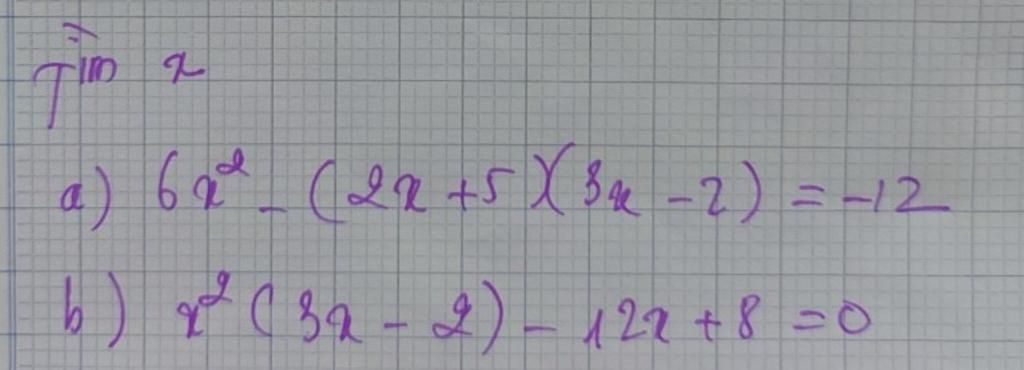 Tìm x
a) 6x² - (2x + 5)(3x - 2) = -12
b) x² (3x - 2) - 12x + 8 = 0